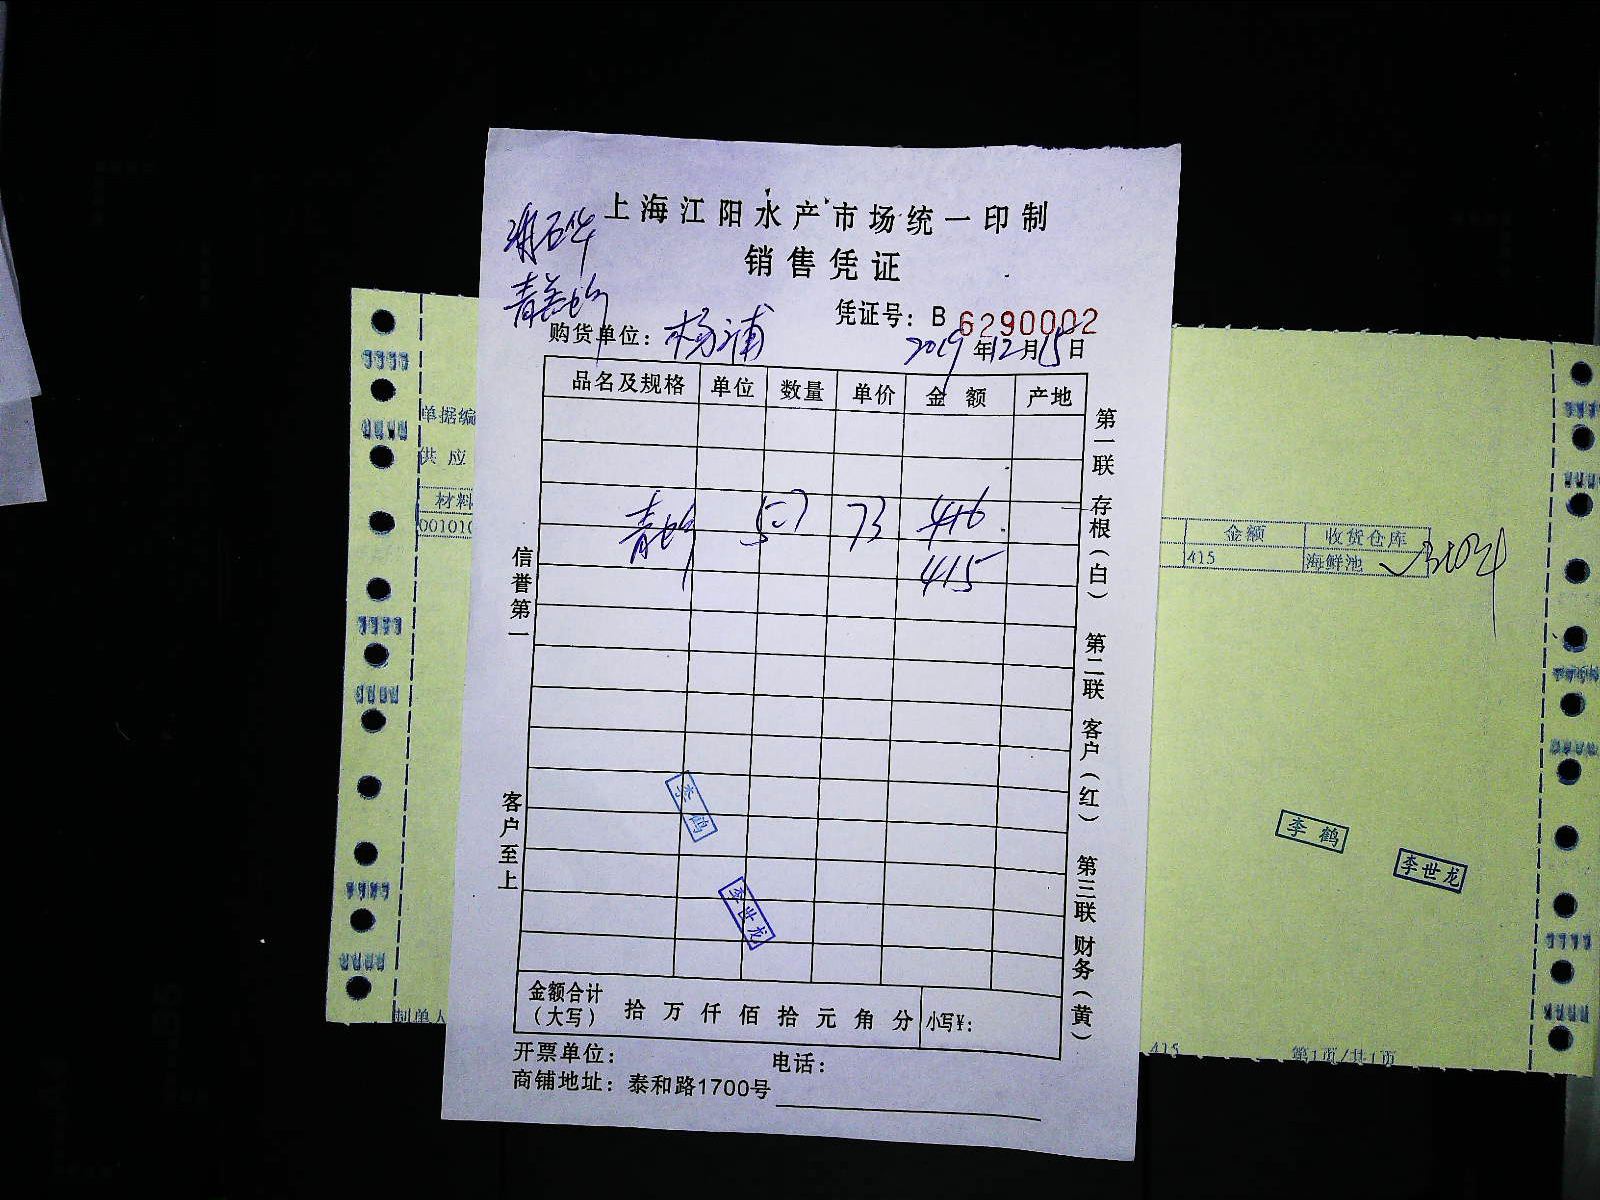 上海江阳水产市场统一印制
销售凭证
凭证号：B 6290002
购货单位：杨浦
2019年12月15日
品名及规格 单位 数量 单价 金额 产地
青 5.7 73 416
415
信誉第一
客户至上
第一联 存根（白） 第二联 客户（红） 第三联 财务（黄）
李鹤
李世龙
金额合计（大写） 拾 万 仟 佰 拾 元 角 分 小写¥：
开票单位： 电话：
商铺地址：泰和路1700号
单据编
供 应
材料
00101
制单人
金额 收货仓库
415 海鲜池
李鹤
李世龙
415 第1页/共1页